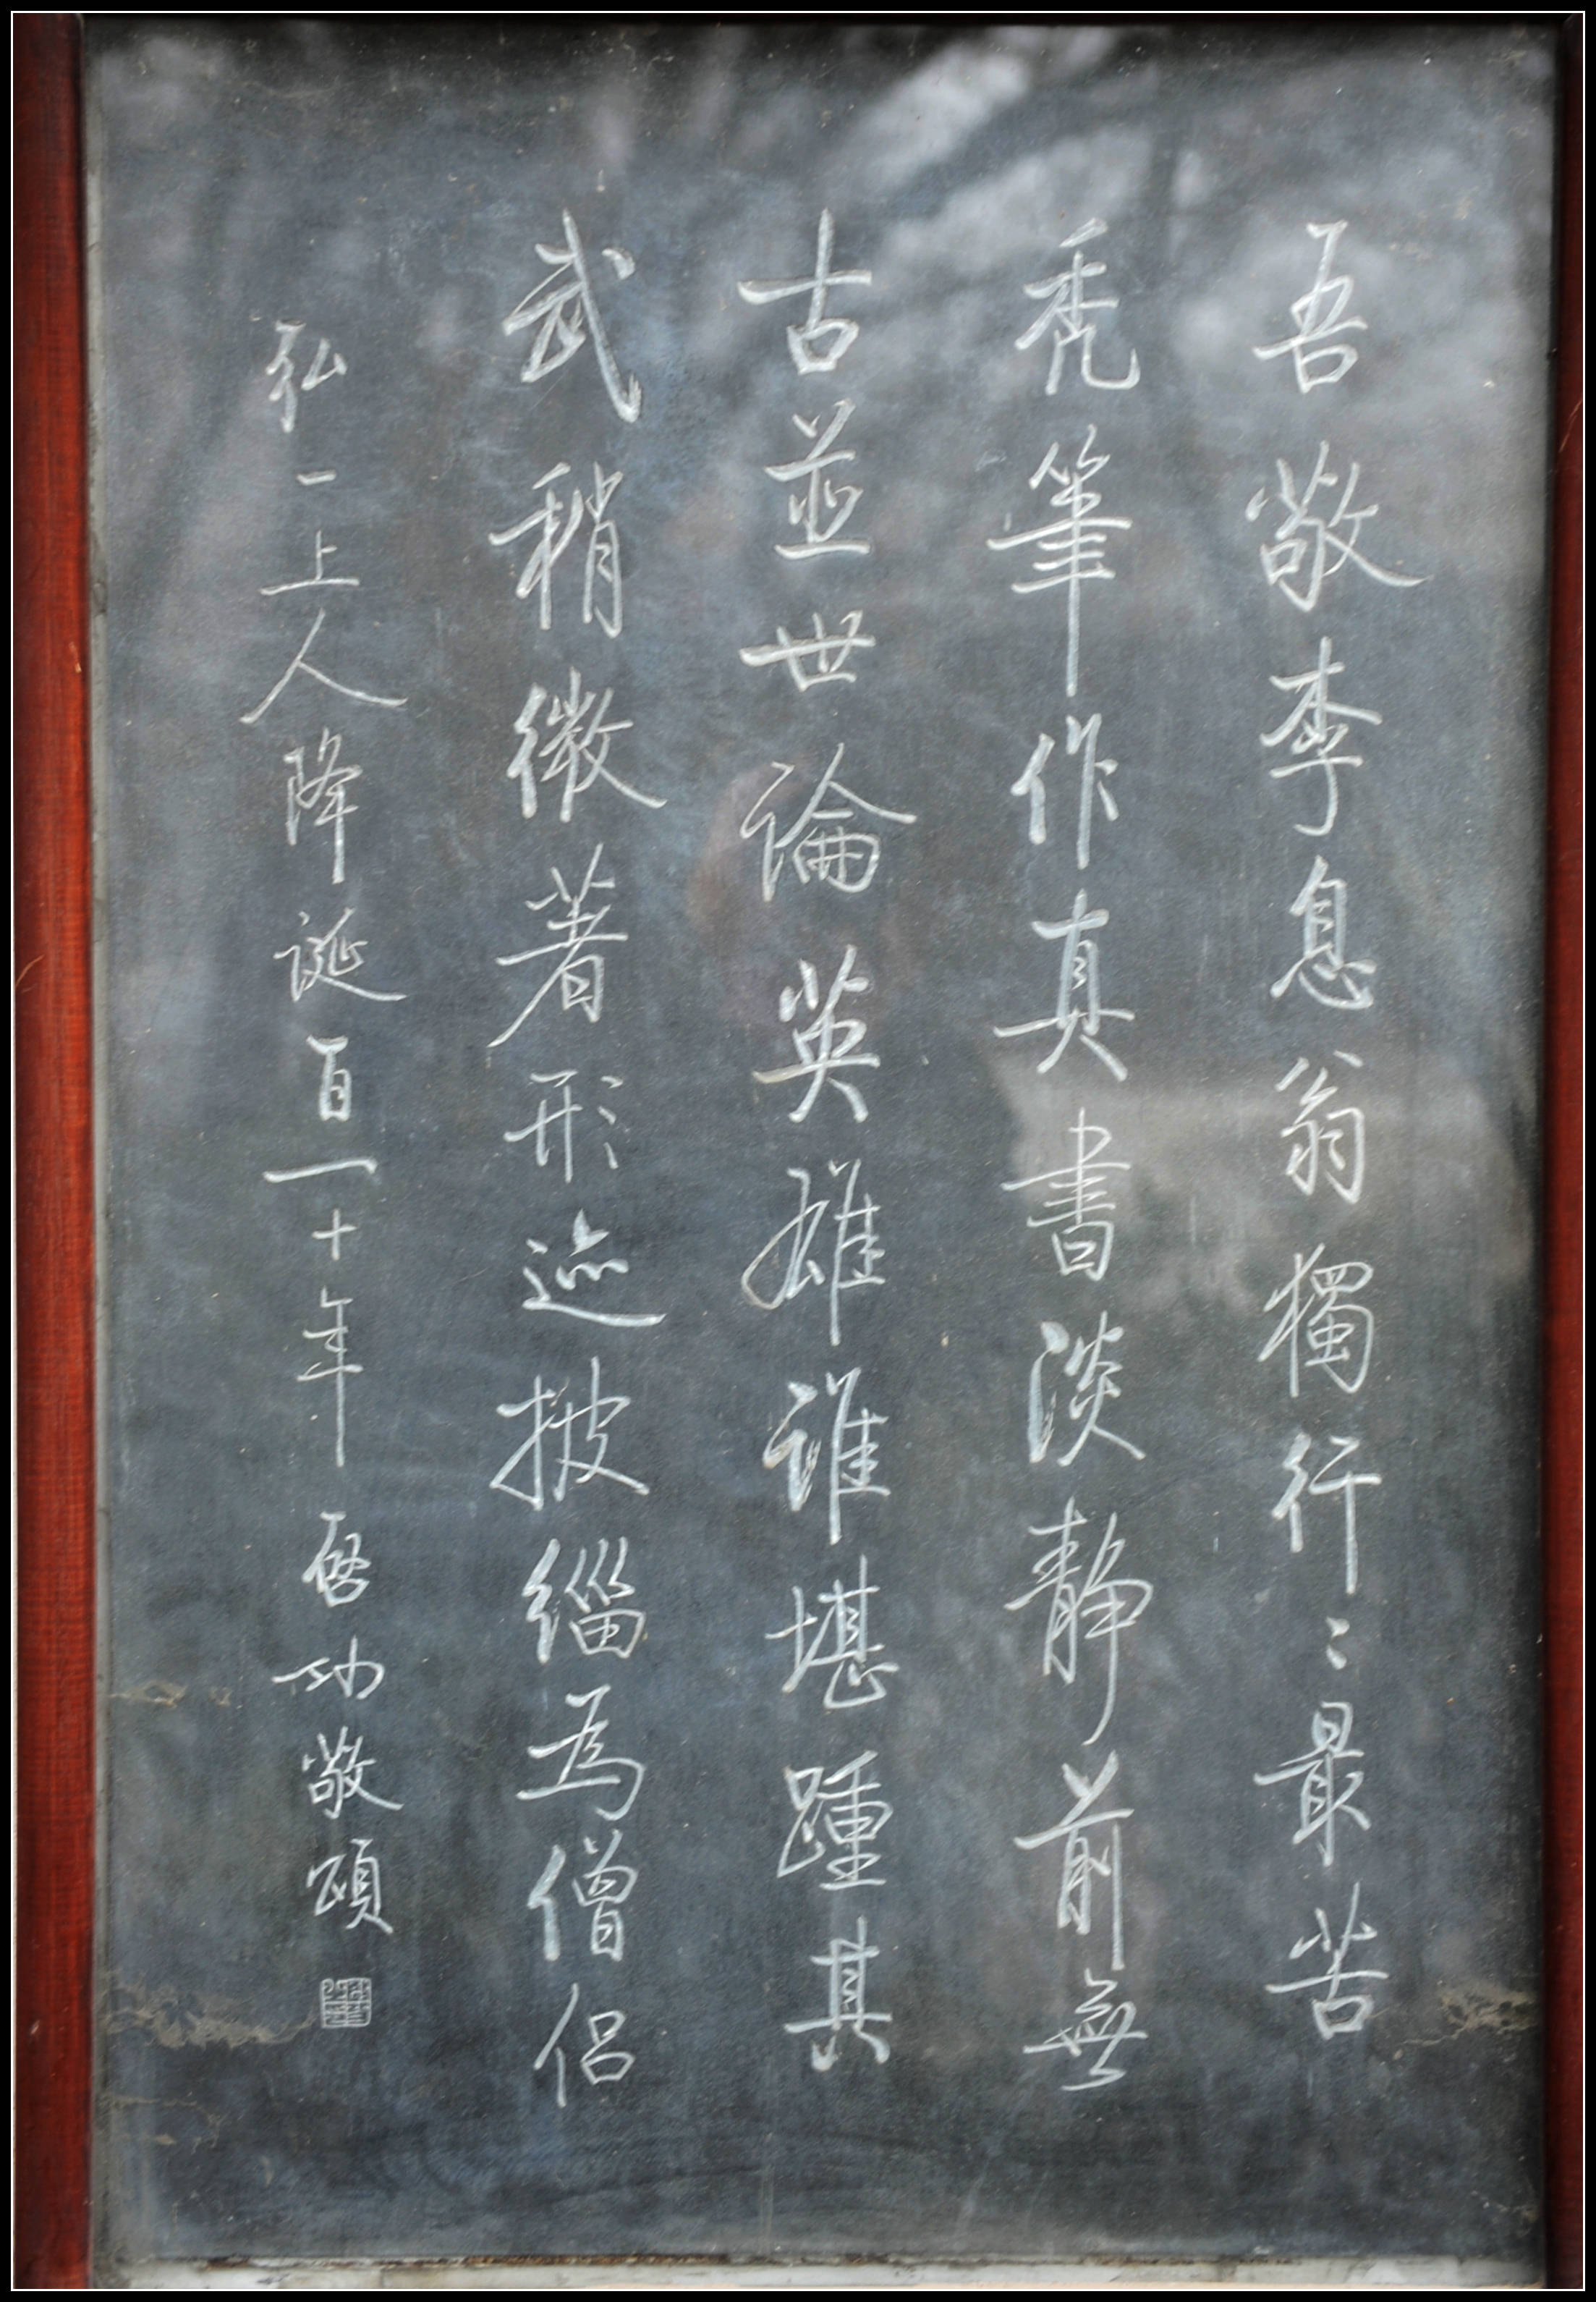 吾敬李息翁獨行〻最苦
秃筆作真書淡静前無
古並世論英雄誰堪踵其
武稍微著形迹披緇為僧侣
弘一上人降誕百一十年 啓功敬頌